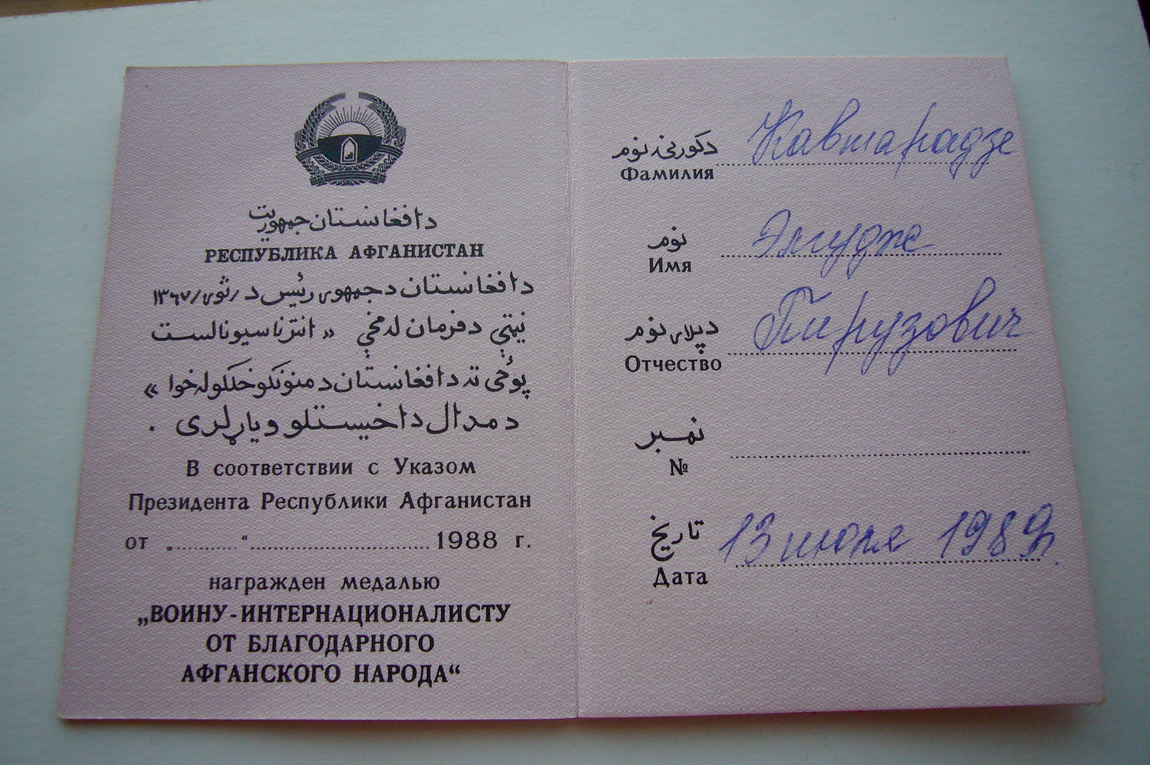 دافغانستان جمهوریت
РЕСПУБЛИКА АФГАНИСТАН
دافغانستان دجمهوری رئیس د /ثور/ ۱۳۶۷
نیټې دفرمان له مخې «انترناسیونالست
پوځی ته دافغانستان دمننوونکو خلکو له خوا»
دمدال داخیستلو ویاړ لری .
В соответствии с Указом
Президента Республики Афганистан
от „..........“ ........................... 1988 г.
награжден медалью
„ВОИНУ-ИНТЕРНАЦИОНАЛИСТУ
ОТ БЛАГОДАРНОГО
АФГАНСКОГО НАРОДА“
دکورنۍ نوم Кавтарадзе
Фамилия
نوم
Имя
دپلار نوم Пирузович
Отчество
نمبر
№
تاریخ 13 июля 1989г.
Дата